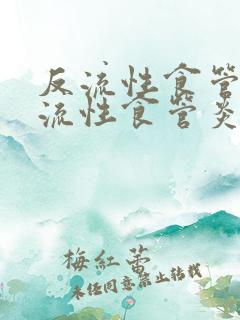 反流性食管
流性食管炎
梅红蕾
未经同意禁止转载